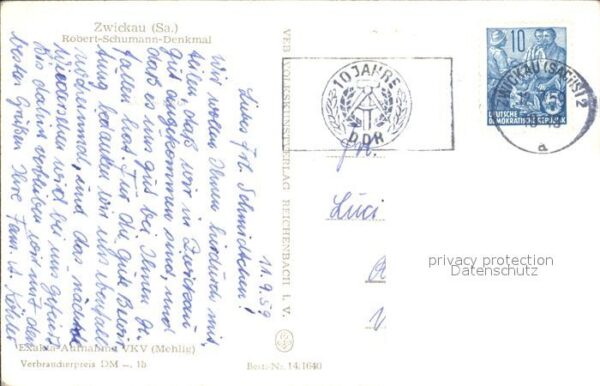 Zwickau (Sa.)
Robert-Schumann-Denkmal
11.9.59
Liebes Frl. Schmidtchen!
Wir wollen Ihnen hierdurch mit-
teilen, daß wir in Zwickau
gut angekommen sind, und
daß es uns gut bei Ihnen ge-
fallen hat. Für die gute Bewir-
tung bedanken wir uns ebenfalls
nochmals, und das nächste
Wiedersehen wird bei uns gefeiert.
Bis dahin verbleiben wir mit den
besten Grüßen Ihre Fam. A. Köhler
Exakta-Aufnahme VKV (Mehlig)
Verbraucherpreis DM -. 1b
Best.-Nr. 14.1640
VEB VOLKSKUNSTVERLAG REICHENBACH I. V.
10 JAHRE
DDR
10
DEUTSCHE
DEMOKRATISCHE REPUBLIK
ZWICKAU (SACHS) 2
a
Luci
privacy protection
Datenschutz